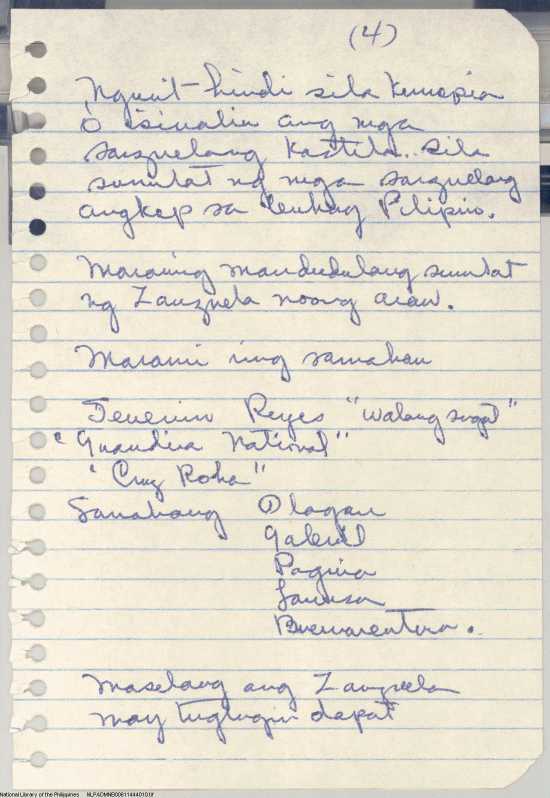 (4)
Nguit-hindi sila kumopia
o isinalin ang mga
sarzuelang Kastila. sila
sumulat ng mga sarzuelang
angkop sa lenhag Pilipino.
Maraming mandudulang sumulat
ng Zarzuela noong araw.
Marami ring samahan
Severino Reyes "Walang sugat"
"Guardia National"
"Cruz Roha"
Samahang Ilagan
Gabriel
Pagina
Buenaventura.
Maselang ang Zarzuela
may tugtugin dapat
National Library of the Philippines NLPADMNB00611444010.tif